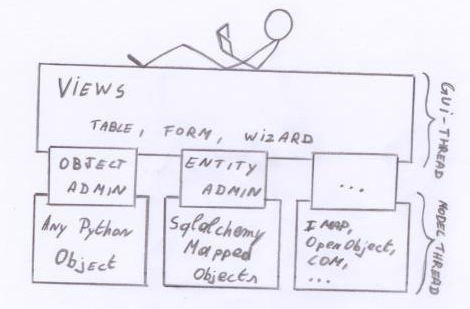 VIEWS
TABLE, FORM, WIZARD
GUI-THREAD
OBJECT
ADMIN
ENTITY
ADMIN
...
Any Python
Object
Sqlalchemy
Mapped
Objects
IMAP,
OpenObject,
COM,
...
MODEL THREAD